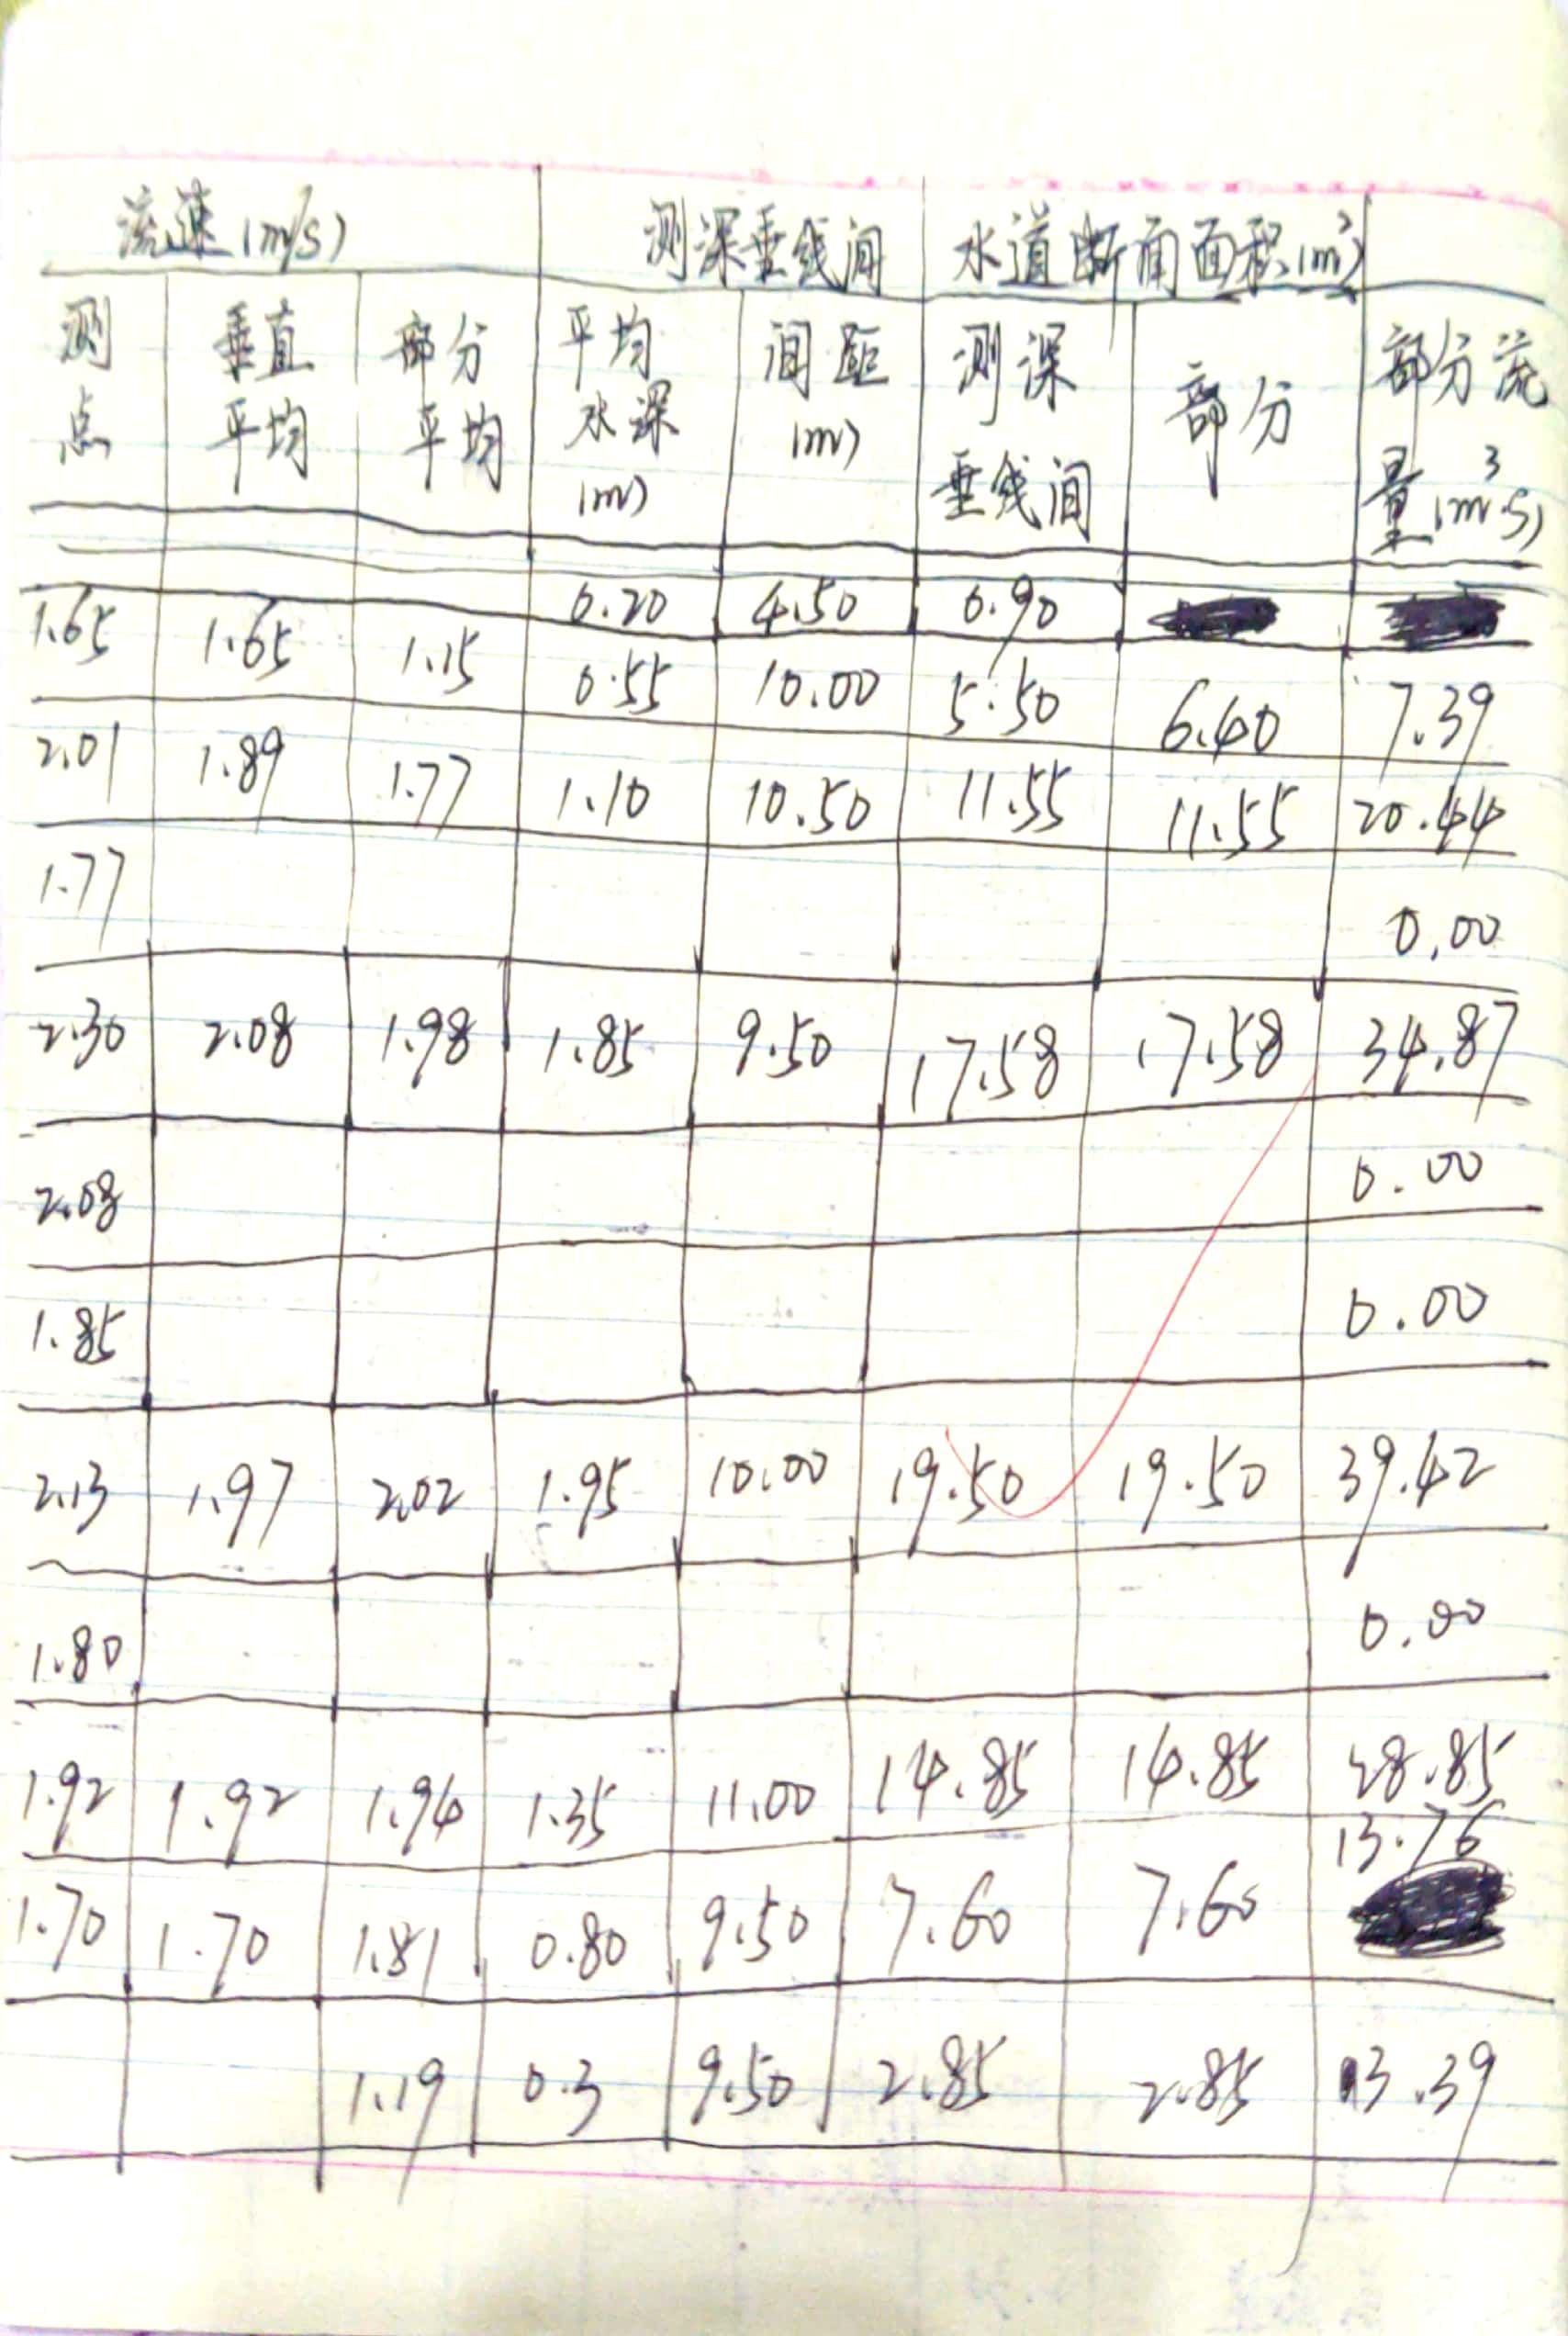 流速(m/s) 测深垂线间 水道断面面积(m²)
测点 垂直平均 部分平均 平均水深(m) 间距(m) 测深垂线间 部分 部分流量(m³·s)
0.20 4.50 0.90
1.65 1.65 1.15 0.55 10.00 5.50 6.40 7.39
2.01 1.89 1.77 1.10 10.50 11.55 11.55 20.44
1.77 0.00
2.30 2.08 1.98 1.85 9.50 17.58 17.58 34.87
2.08 0.00
1.85 0.00
2.13 1.97 2.02 1.95 10.00 19.50 19.50 39.42
1.80 0.00
1.92 1.92 1.94 1.35 11.00 14.85 14.85 28.85
1.70 1.70 1.81 0.80 9.50 7.60 7.60 13.76
1.19 0.3 9.50 2.85 2.85 3.39